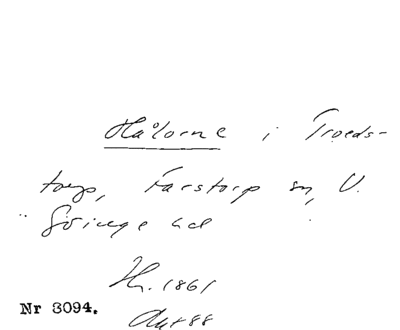 Hålorne i Troeds-
torp, Farstorp sn, V.
Göinge hd
Hr. 1861
Avt 88
Nr 3094.